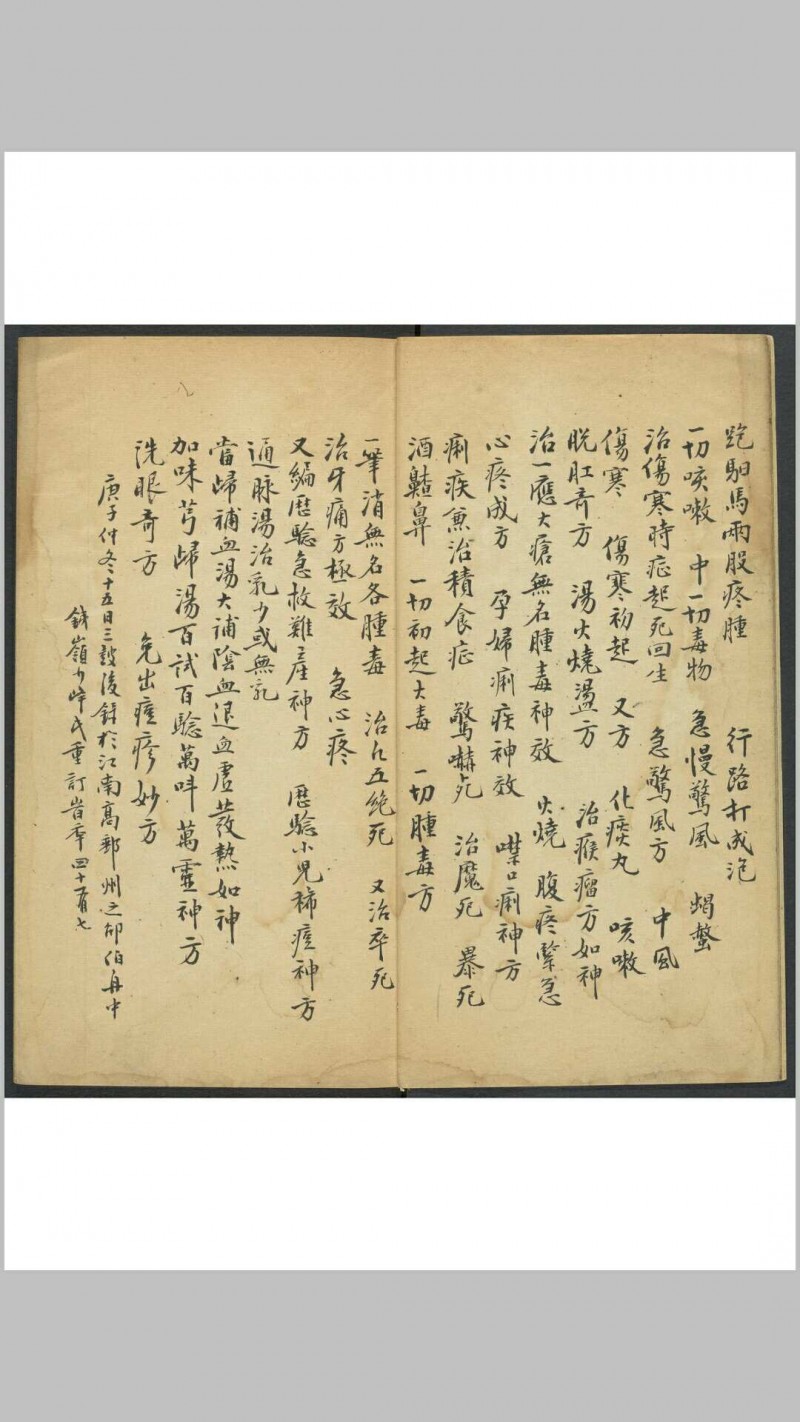 跑馹馬兩股疼腫　行路打成泡
一切咳嗽　中一切毒物　急慢驚風　蝎螫
治傷寒時症起死回生　急驚風方　中風
傷寒　傷寒初起　又方　化痰丸　咳嗽
脫肛奇方　湯火燒燙方　治瘊瘤方如神
治一應大瘡無名腫毒神效　火燒　腹疼緊急
心疼成方　孕婦痢疾神效　噤口痢神方
痢疾兼治積食症　驚嚇死　治魔死　暴死
酒齄鼻　一切初起大毒　一切腫毒方
一筆消無名各腫毒　治凡五絕死　又治卒死
治牙痛方極效　急心疼
又編歷驗急救難產神方　歷驗小兒稀痘神方
通脉湯治乳少或無乳
當歸補血湯大補陰血退血虛發熱如神
加味芎歸湯百試百驗萬叫萬靈神方
洗眼奇方　免出痘疹妙方
庚子仲冬十五日三鼓後錄於江南高郵州之邵伯舟中
鐵嶺少峰氏重訂昔年四十有七